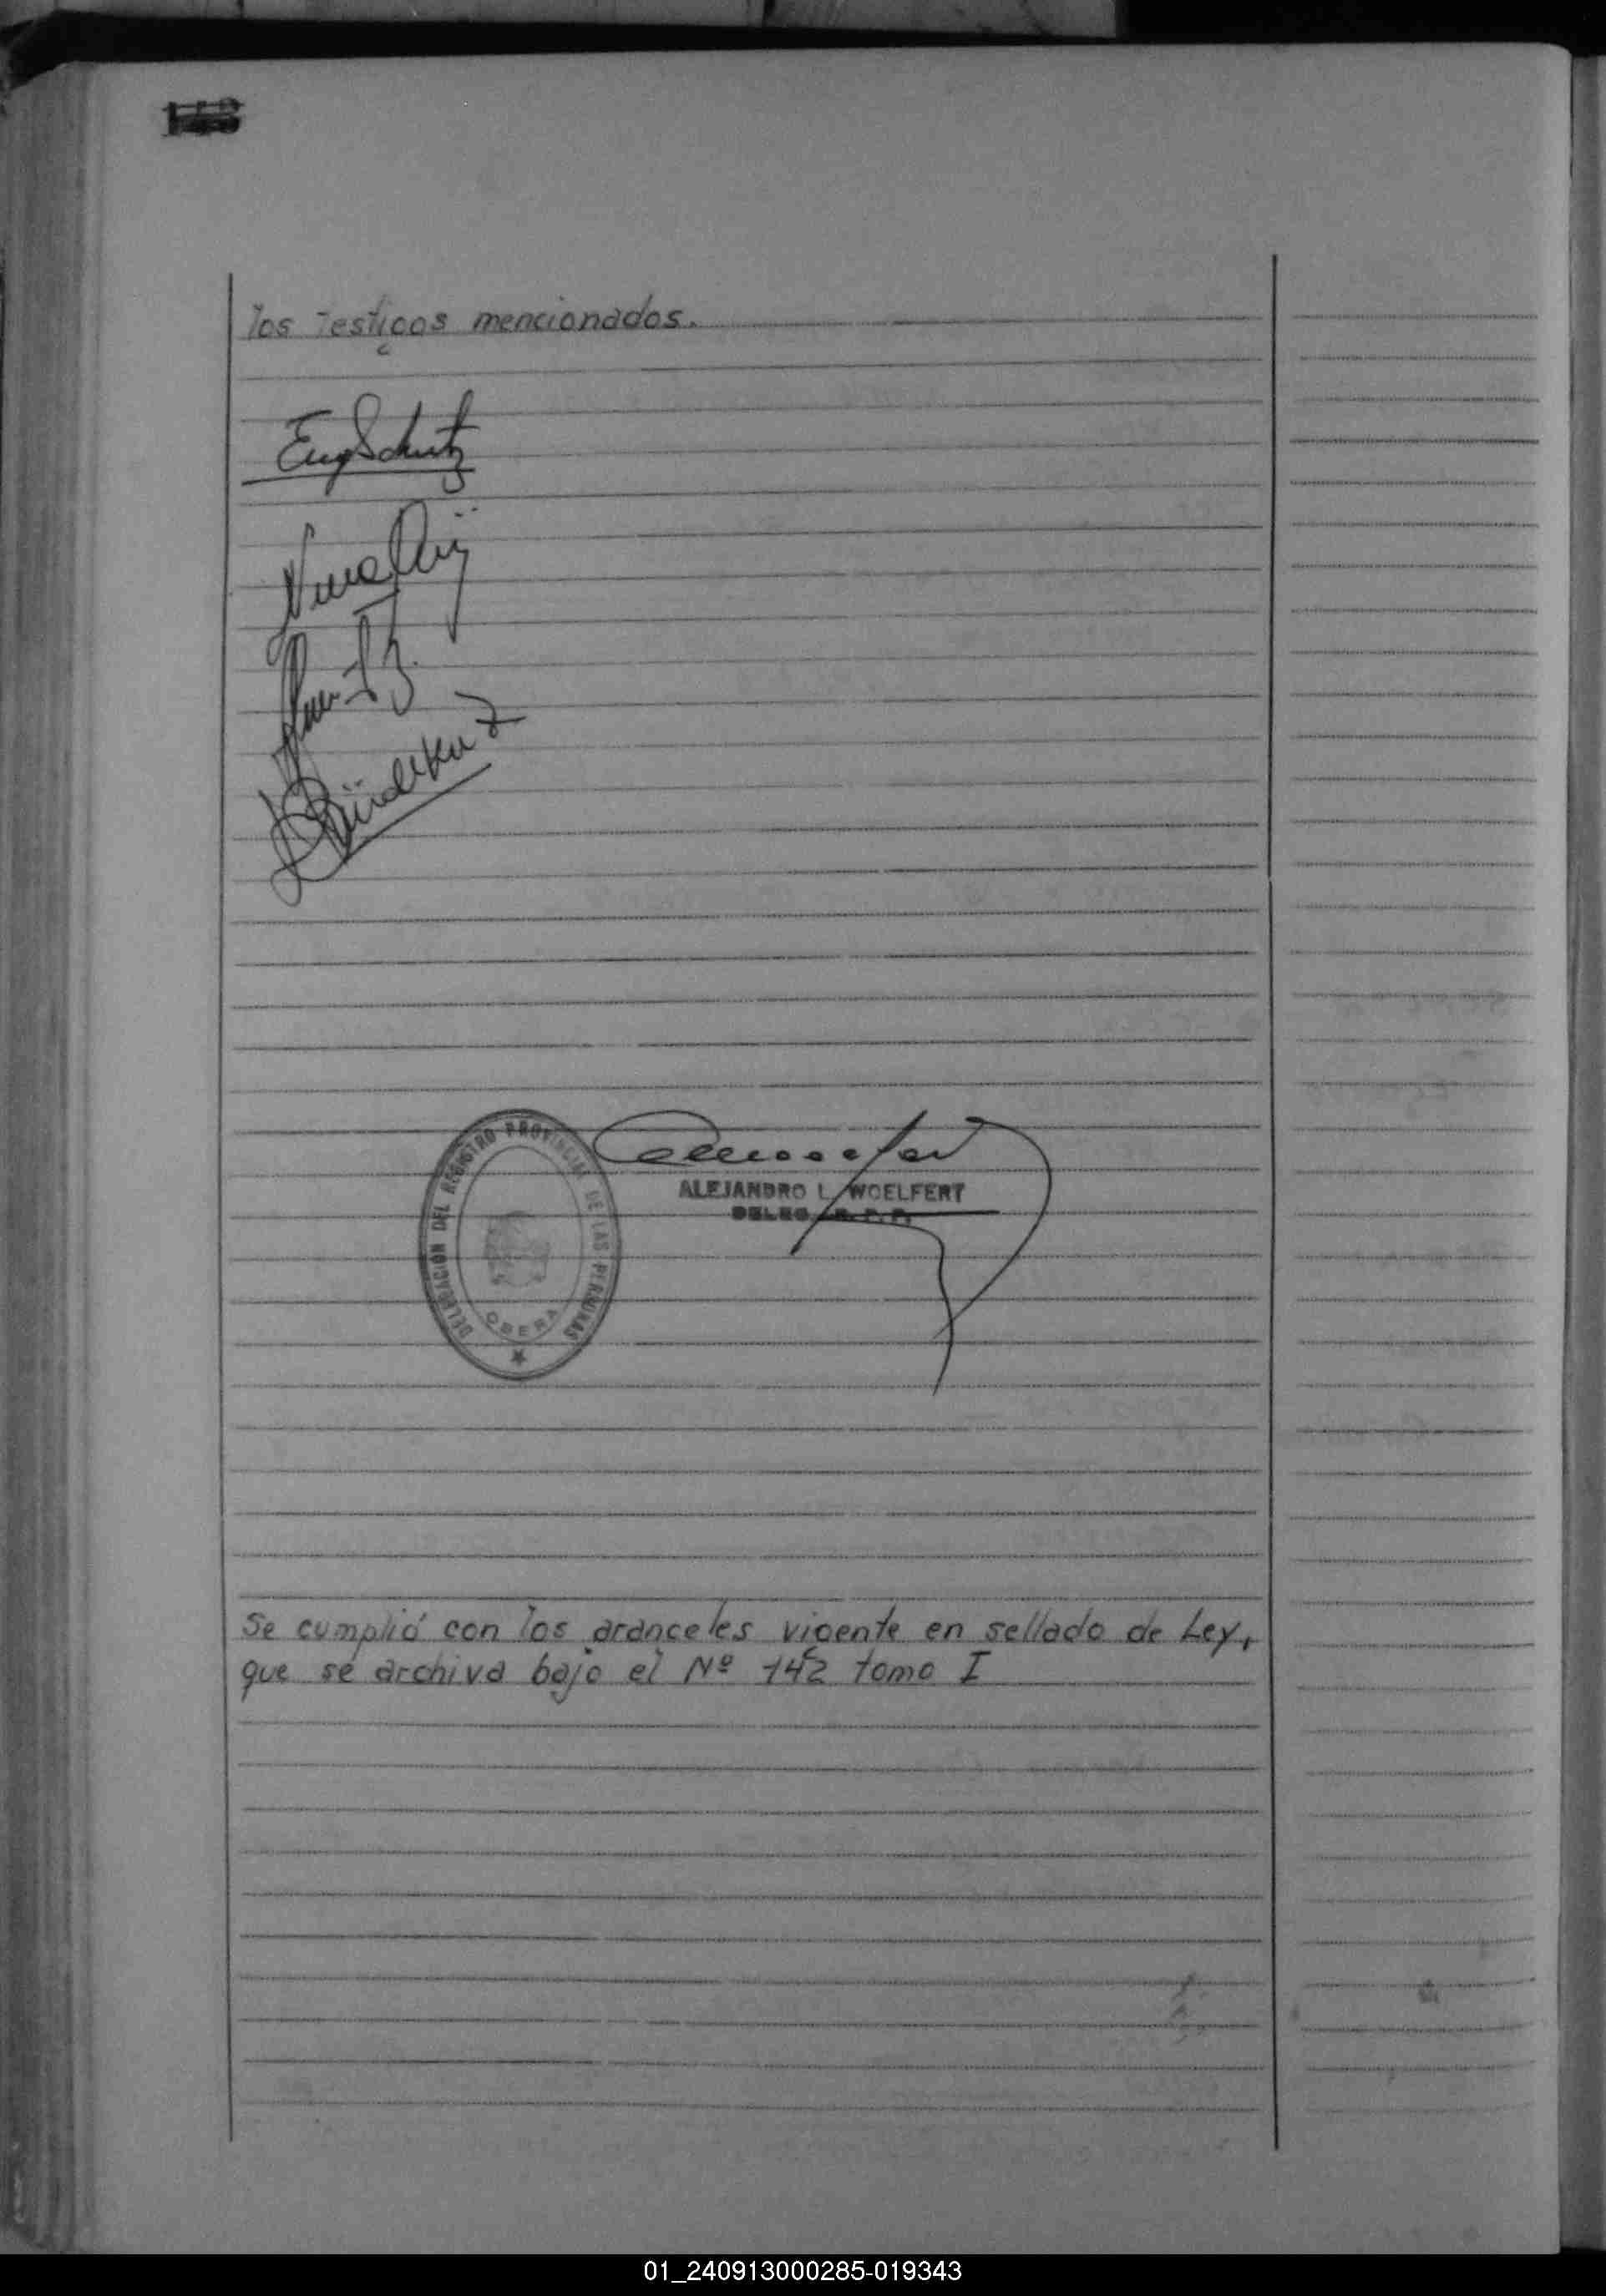 los testigos mencionados.
EugSchutz
DELEGACIÓN DEL REGISTRO PROVINCIAL DE LAS PERSONAS
OBERA
ALEJANDRO L. WOELFERT
DELEG. R. P. P.
Se cumplió con los aranceles vigente en sellado de Ley,
que se archiva bajo el Nº 142 tomo I
01_240913000285-019343